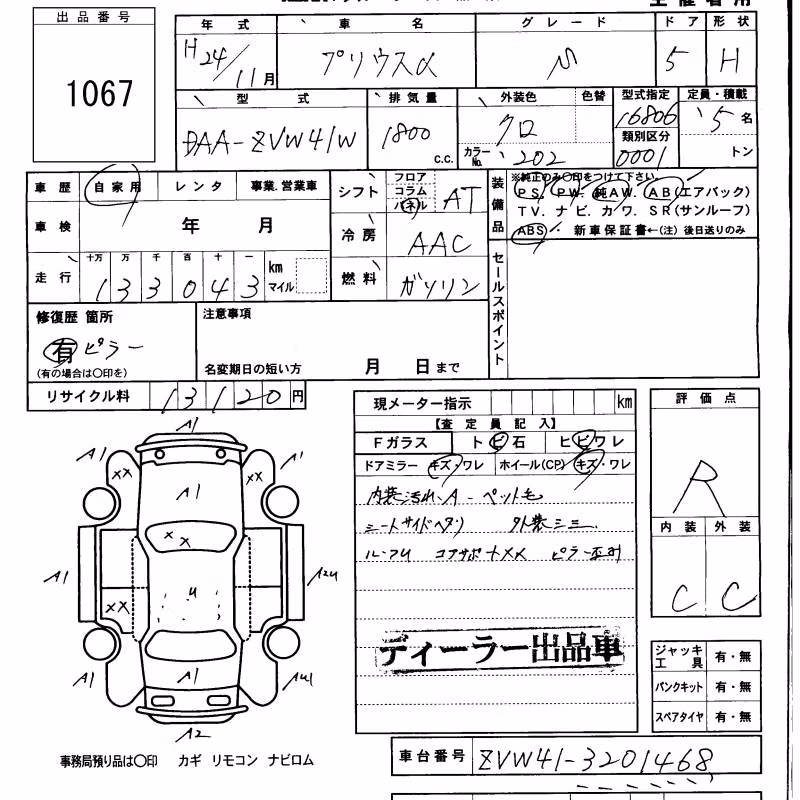 出品番号
1067
年式 車名 グレード ドア 形状
H24/11月 プリウスα S 5 H
型式 排気量 外装色 色替 型式指定 定員・積載
DAA-ZVW41W 1800 c.c. クロ 16806 5名
カラーNo. 202 類別区分 0001 トン
車歴 自家用 レンタ 事業.営業車
車検 年 月
走行 十万 万 千 百 十 一 km マイル
133043
シフト フロア コラム パネル AT
冷房 AAC
燃料 ガソリン
装備品 ※純正のみ〇印をつけて下さい
PS. PW. 純AW. AB(エアバック)
TV. ナビ. カワ. SR(サンルーフ)
ABS 新車保証書←(注) 後日送りのみ
セールスポイント
修復歴 箇所
有 ピラー
(有の場合は〇印を)
注意事項
名変期日の短い方 月 日まで
リサイクル料 13120円
現メーター指示 km
【査定員記入】
Fガラス トビ石 ヒビワレ
ドアミラー キズ・ワレ ホイール(CP) キズ・ワレ
内装汚れA-ペット毛
シートサイドヘタリ 外装ミミ
ルーフU コアサポ+XX ピラー
ディーラー出品車
評価点
R
内装 外装
C C
ジャッキ工具 有・無
パンクキット 有・無
スペアタイヤ 有・無
A1
A1 XX XX A1
A1
XX
A1 A2U
XX U
A1 A1 AU1
A2
事務局預り品は〇印 カギ リモコン ナビロム
車台番号 ZVW41-3201468